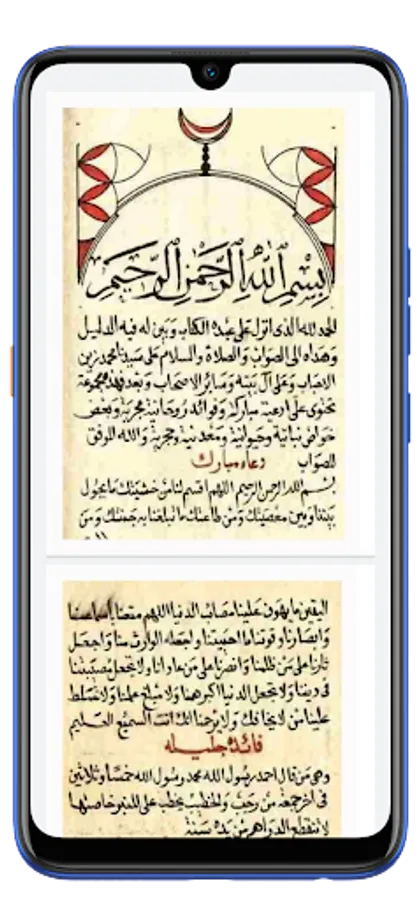 بسم الله الرحمن الرحيم
الحمد لله الذي انزل على عبده الكتاب وبين له فيه الدليل
وهداه الى الصواب والصلاة والسلام على سيدنا محمد زين
الاحباب وعلى آل بيته وسائر الاصحاب وبعد فهذه مجموعة
تحتوى على ادعية مباركة وفوائد روحانية مجربة وبعض
خواص نباتية وحيوانية ومعدنية ومجربة والله الموفق
للصواب دعاء مبارك
بسم الله الرحمن الرحيم اللهم اقسم لنا من خشيتك ما يحول
بيننا وبين معصيتك ومن طاعتك ما تبلغنا به جنتك ومن
اليقين ما يهون علينا مصائب الدنيا اللهم متعنا باسماعنا
وابصارنا وقوتنا ما احييتنا واجعله الوارث منا واجعل
ثارنا على من ظلمنا وانصرنا على من عادانا ولا تجعل مصيبتنا
فى ديننا ولا تجعل الدنيا اكبر همنا ولا مبلغ علمنا ولا تسلط
علينا من لا يخافك ولا يرحمنا انك انت السميع العليم
فائدة جليله
وهى من قال احمد رسول الله محمد رسول الله خمسا وثلاثين
فى اخر جمعة من رجب والخطيب يخطب على المنبر خاصتها
لا تنقطع الدراهم من يده سنة